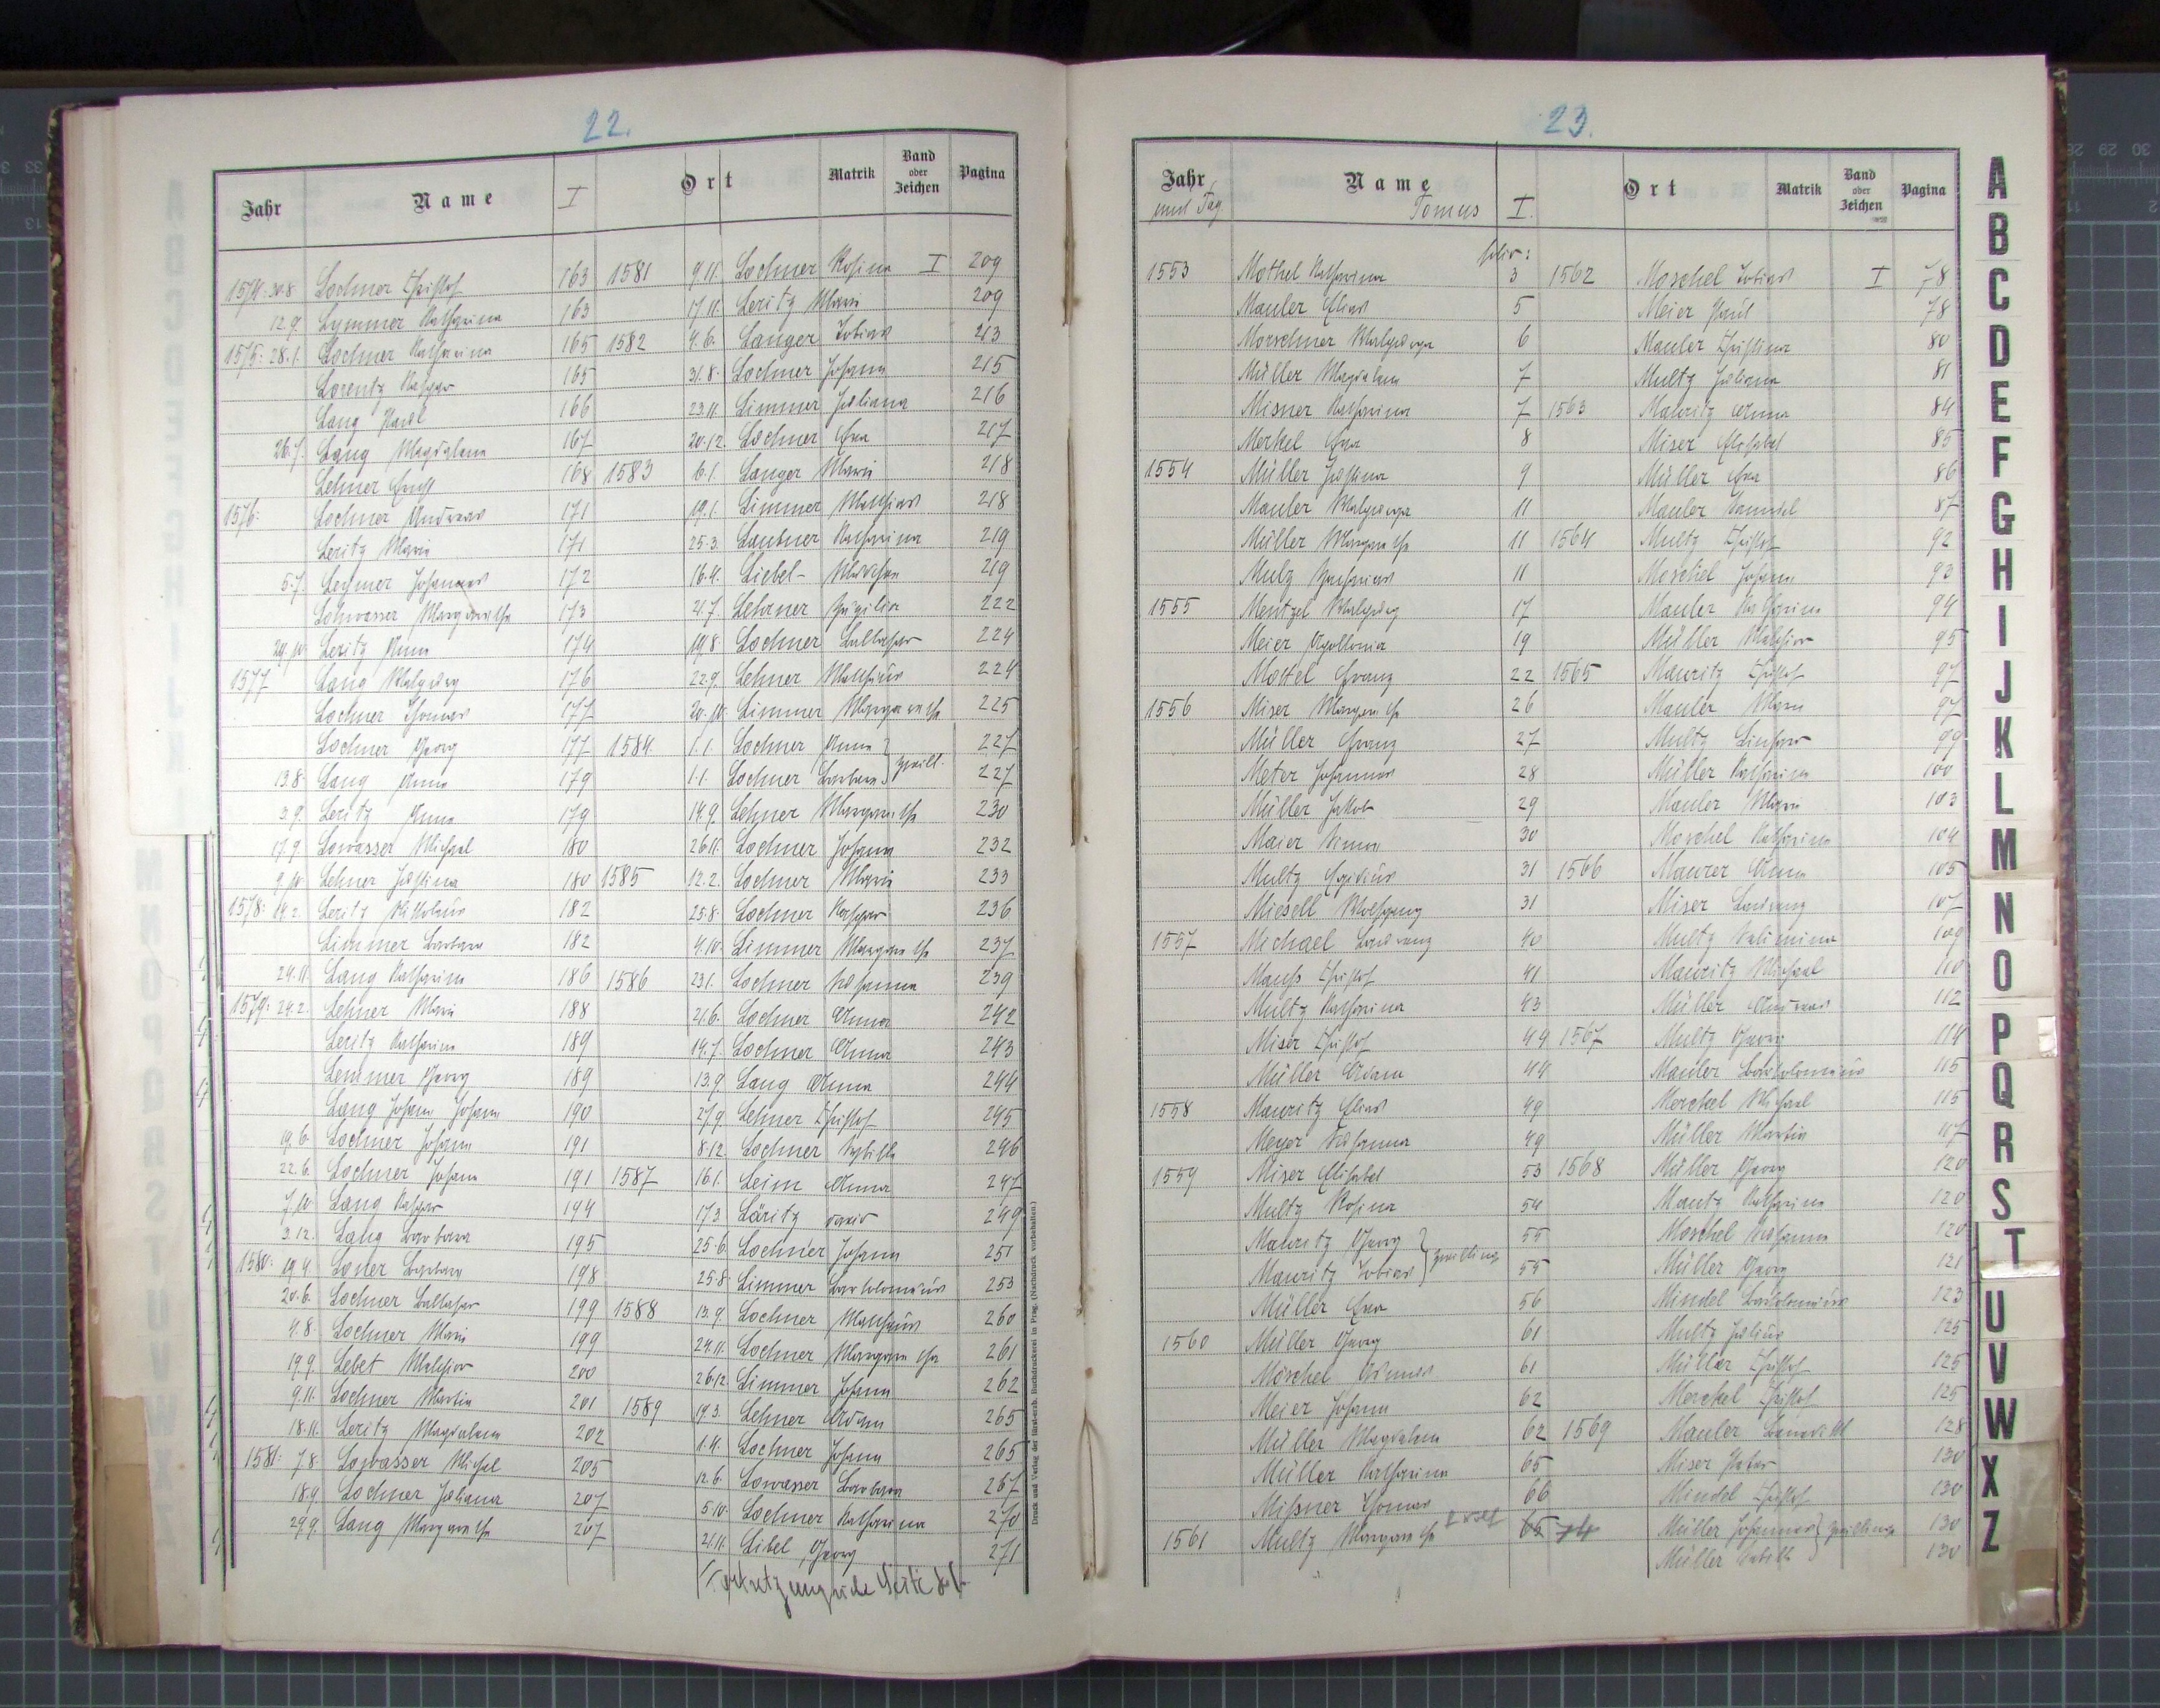 22.
Jahr Name I Ort Matrik Band oder Zeichen Pagina
1574: 30.8. Lochner Christof 163 1581 9.11. Lochner Rosina I 209
12.9. Lymmer Katharina 163 17.11. Leritz Maria 209
1575: 28.1. Lochner Katharina 165 1582 4.6. Langer Tobias 213
Lorentz Kaspar 165 31.8. Lochner Johann 215
Lang Paul 166 23.11. Limmer Juliana 216
26.7. Lang Magdalena 167 20.12. Lochner Eva 217
Lehner 168 1583 6.1. Langer Maria 218
1576: Lochner Andreas 171 19.1. Limmer Matthias 218
Leritz Maria 171 25.3. Lautner Katharina 219
5.7. Leymer Johannes 172 16.4. Liebel- 219
Lohwasser Margaretha 173 21.7. Lehrner 222
29.10. Leritz Anna 174 19.8. Lochner Balthasar 224
1577 Lang Walpurg 176 22.9. Lehner Matthäus 224
Lochner Thomas 177 20.10. Limmer Margaretha 225
Lochner Georg 177 1584 1.1. Lochner Anna } zwill. 227
13.8. Lang Anna 179 1.1. Lochner Barbara } 227
3.9. Leritz Anna 179 14.9. Lehner Margaretha 230
17.9. Lowasser Michael 180 26.11. Lochner Johann 232
9.10. Lehner Justina 180 1585 12.2. Lochner Maria 233
1578: 14.2. Leritz Nikolaus 182 25.8. Lochner Kaspar 236
Limmer Barbara 182 4.10. Limmer Margaretha 237
24.11. Lang Katharina 186 1586 23.1. Lochner Susanna 239
1579: 24.2. Lehner Maria 188 21.6. Lochner Anna 242
Leritz Katharina 189 14.7. Lochner Anna 243
Lemmer Georg 189 13.9. Lang Anna 244
Lang Johann Johann 190 27.9. Lehner Christof 245
19.6. Lochner Johann 191 8.12. Lochner Sybilla 246
22.6. Lochner Johann 191 1587 16.1. Leim Anna 247
7.10. Lang Kaspar 194 17.3. Läritz David 249
3.12. Lang Barbara 195 25.6. Lochner Johann 251
1580: 19.4. Loner Barbara 198 25.8. Limmer Bartolomäus 253
20.6. Lochner Balthasar 199 1588 13.9. Lochner Matthäus 260
4.8. Lochner Maria 199 24.11. Lochner Margaretha 261
19.9. Lebet Melchior 200 26.12. Limmer Johann 262
9.11. Lochner Martin 201 1589 19.3. Lehner Adam 265
18.11. Leritz Magdalena 202 1.4. Lochner Johann 265
1581: 7.8. Lowasser Michel 205 12.6. Lowasser Barbara 267
18.9. Lochner Juliana 207 5.10. Lochner Katharina 270
29.9. Lang Margaretha 207 21.11. Libel Georg 271
Fortsetzung siehe Seite
Druck und Verlag der fürst-erzb. Buchdruckerei in Prag. (Nachdruck vorbehalten.)
23.
Jahr und Tag. Name Tomus I. Ort Matrik Band oder Zeichen Pagina
folio:
1553 Mothel Katharina 3 1562 Moschel Tobias I 78
Mauler Elias 5 Meier Paul 78
Morschner Walpurga 6 Mauler Christina 80
Müller Magdalena 7 Multz Juliana 81
Misner Katharina 7 1563 Mauritz Anna 84
Merkel Eva 8 Miser Elisabet 85
1554 Müller Justina 9 Müller Eva 86
Mauler Walpurga 11 Mauler 87
Müller Margaretha 11 1564 Multz Christof 92
Mulz Zacharias 11 Moschel Johann 93
1555 Mentzel Walpurg 17 Mauler Katharina 94
Meier Apollonia 19 Müller Melchior 95
Mottel Franz 22 1565 Mauritz Christof 97
1556 Miser Margaretha 26 Mauler Maria 97
Müller Franz 27 Multz 99
Meter Johannes 28 Müller Katharina 100
Müller Jakob 29 Mauler Maria 103
Maier Simon 30 Moschel Katharina 104
Multz Egidius 31 1566 Maurer Anna 105
Miesell Wolfgang 31 Miser Lorenz 107
1557 Michael Lorenz 40 Multz 109
Mauss Christof 41 Mauritz Michael 110
Multz Katharina 43 Müller Andreas 112
Miser Christof 44 1567 Multz Georg 114
Müller Adam 44 Mauler Bartolomäus 115
1558 Mauritz Elias 49 Merckel Michael 115
Meyer Susanna 49 Müller Martin 117
1559 Miser Elisabet 53 1568 Müller Georg 120
Multz Rosina 54 Mautz Katharina 120
Mauritz Georg } Zwillinge 55 Moschel Susanna 120
Mauritz Tobias } 55 Müller Georg 121
Müller Eva 56 Mindel Bartolomäus 123
1560 Müller Georg 61 Multz Julius 125
Möschel 61 Müller Christof 125
Meier Johann 62 Merckel Christof 125
Müller Magdalena 62 1569 Mauler Benedikt 128
Müller Katharina 65 Miser Peter 130
Missner Thomas 66 Mindel Christof 130
1561 Multz Margaretha 65 74 Müller Johannes } Zwillinge 130
Müller } 130
A
B
C
D
E
F
G
H
I
J
K
L
M
N
O
P
Q
R
S
T
U
V
W
X
Z